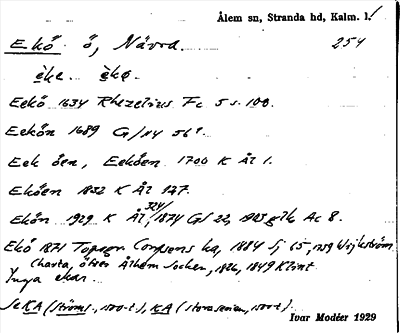 Ålem sn, Stranda hd, Kalm. l.
Ekö ö, Návra. 254
èke. èkø.
Eekö 1634 Rhezelius Fc 5 s. 100.
Eekön 1689 G/14 56
Eek öen, Eeköen 1700 K Ål 1.
Eköen 1832 K Ål 127.
Ekön 1929 K Ål, 324/1874 Gs 22, Ac 8.
Ekö 1871 Topogr ka, 1884 Sj 65, 1739 Wijkström
Charta, öfver Ålhem Sochen, 1826, 1849 Klint
Inga ekar.
Se KA (Ströms, 1500-t), KA (Storaserien, 1500-t).
Ivar Modéer 1929